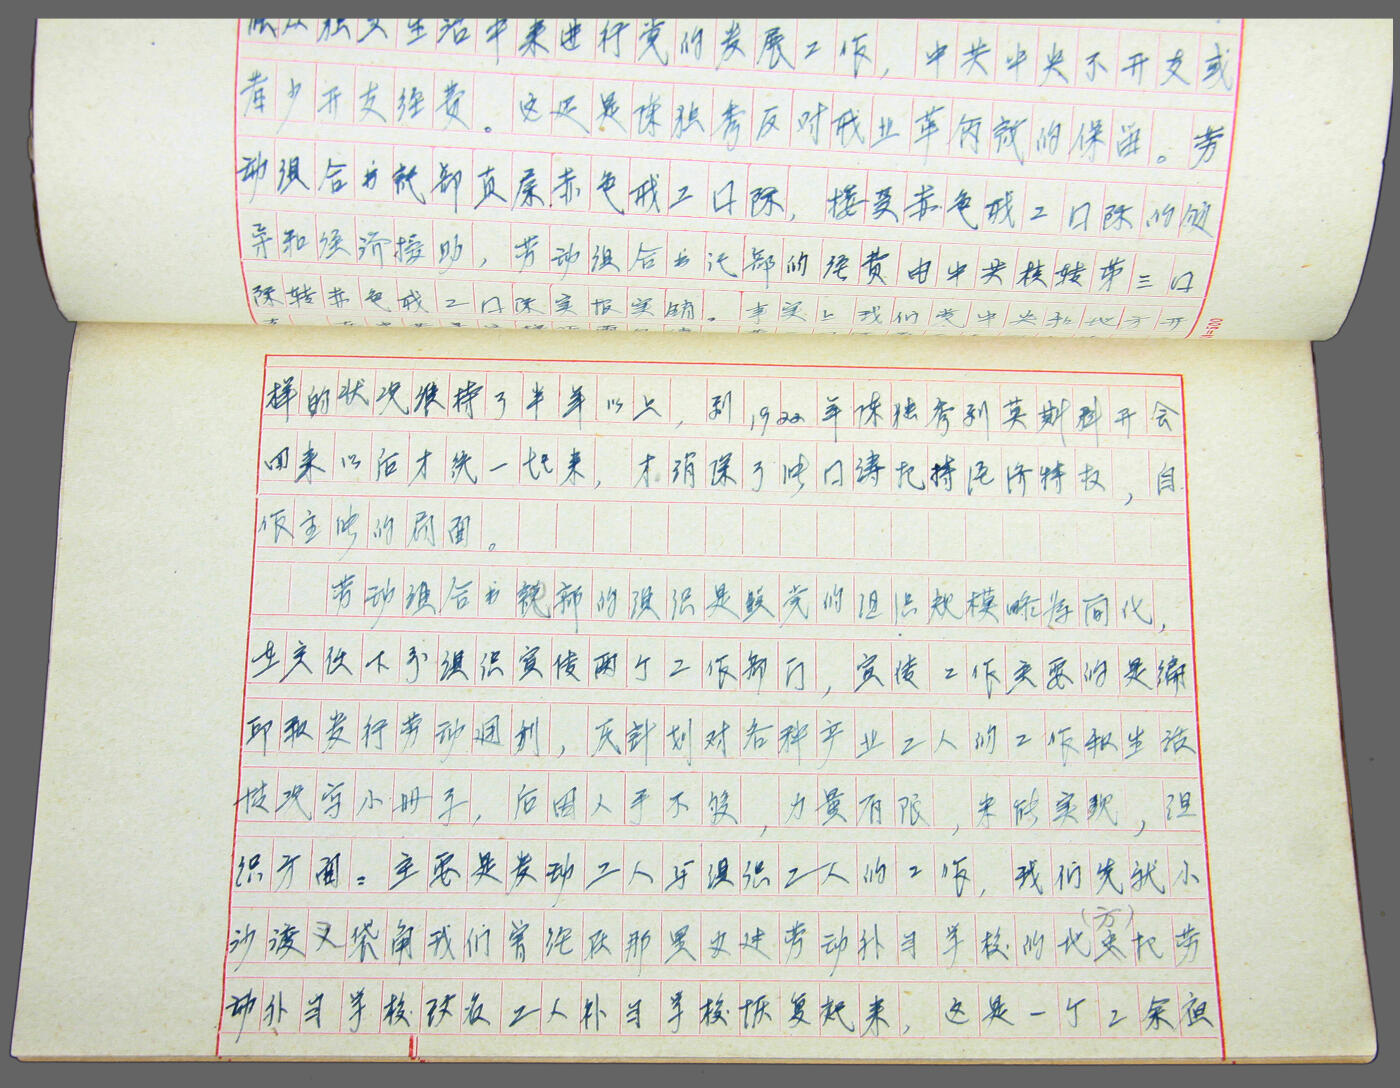 从独立生活中来进行党的发展工作，中共中央不开支或
者少开支经费。这还是陈独秀反对职业革命家的保留。劳
动组合书记部直属赤色职工国际，接受赤色职工国际的领
导和经济援助，劳动组合书记部的经费由中共核转第三国
际转赤色职工国际实报实销。事实上我们党中央和地方开
样的状况维持了半年以上，到1922年陈独秀到莫斯科开会
回来以后才统一起来，才消除了张国焘把持经济特权，自
作主张的局面。
劳动组合书记部的组织是较党的组织规模略为简化，
在主任下分组织宣传两个工作部门，宣传工作主要的是编
印和发行劳动周刊，原计划对各种产业工人的工作和生活
情况写小册子，后因人手不够，力量有限，未能实现，组
织方面：主要是发动工人与组织工人的工作，我们先就小
沙渡又袋角我们曾经在那里办过劳动补习学校的地(方)把劳
动补习学校改为工人补习学校恢复起来，这是一个工余夜